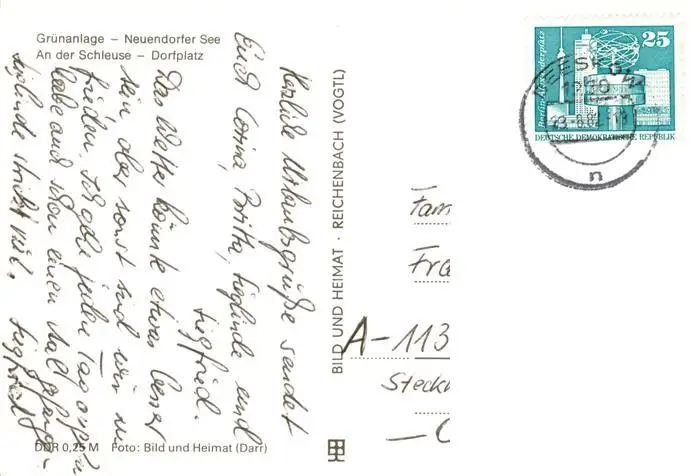 Grünanlage – Neuendorfer See
An der Schleuse – Dorfplatz
Herzliche Urlaubsgrüße sendet
Euch Corina, Britta, Sieglinde und
Siegfried.
Das Wetter könnte etwas besser
sein aber sonst sind wir zu
frieden. Ich gehe jeden Tag angeln
habe auch schon einen Aal gefangen
Sieglinde strickt viel. Siegfried
DDR 0,25 M Foto: Bild und Heimat (Darr)
BILD UND HEIMAT · REICHENBACH (VOGTL)
Berlin-Alexanderplatz
25
DEUTSCHE DEMOKRATISCHE REPUBLIK
BEESKOW
n
Fam
Fra
A-113
Steck